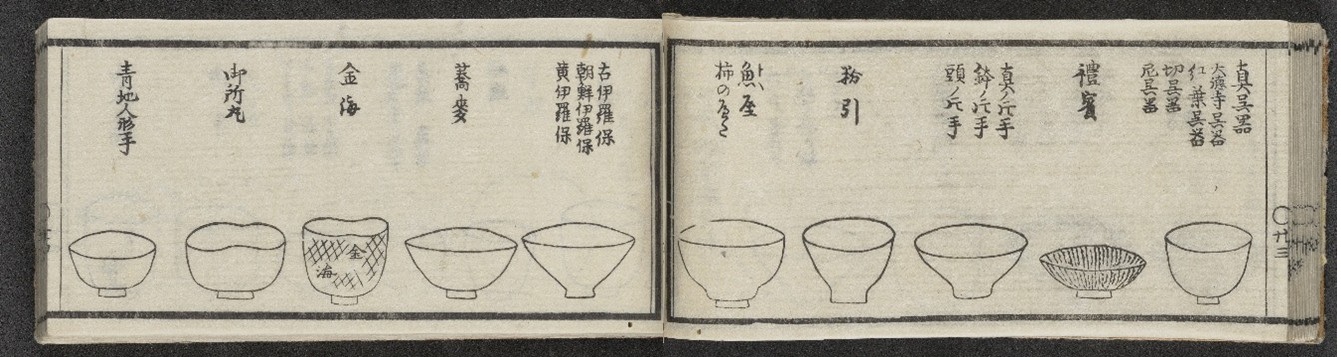 真呉器
大徳寺呉器
紅葉呉器
切呉器
尼呉器
禮賓
真ノ斗々手
鈴ノ斗々手
頭ノ斗々手
粉引
魚屋
柿のへた
古伊羅保
朝鮮伊羅保
黄伊羅保
蕎麥
金海
金
海
御所丸
青地人形手
〇廿三